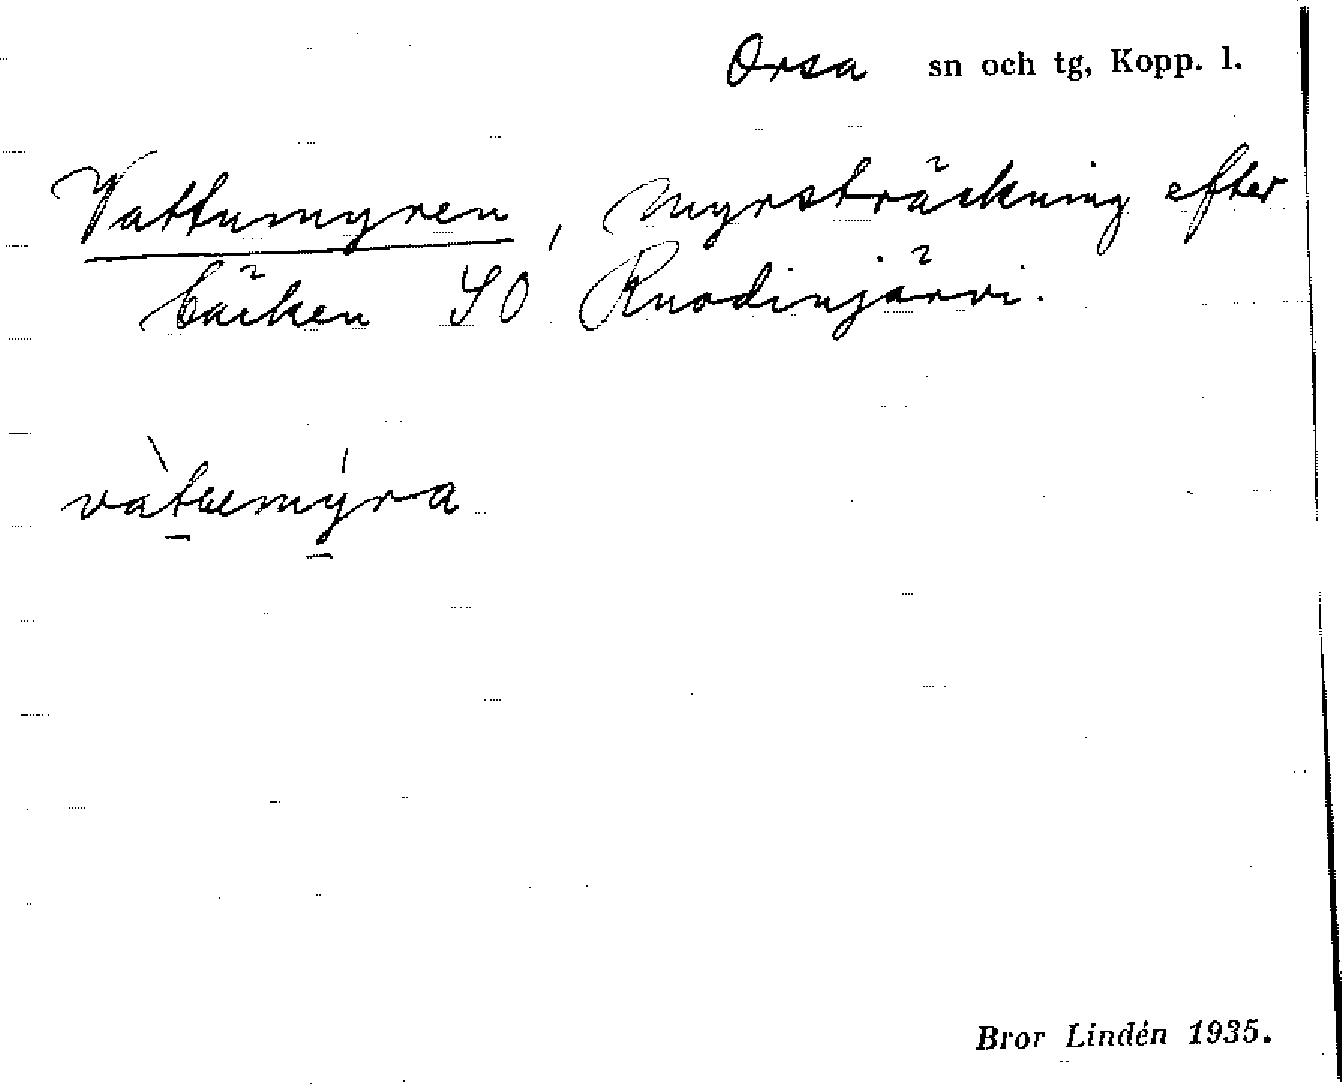 Orsa sn och tg, Kopp. l.
Vattumyren, Myrsträckning efter
bäcken SO Ruodinjärvi.
vàtuemýra
Bror Lindén 1935.